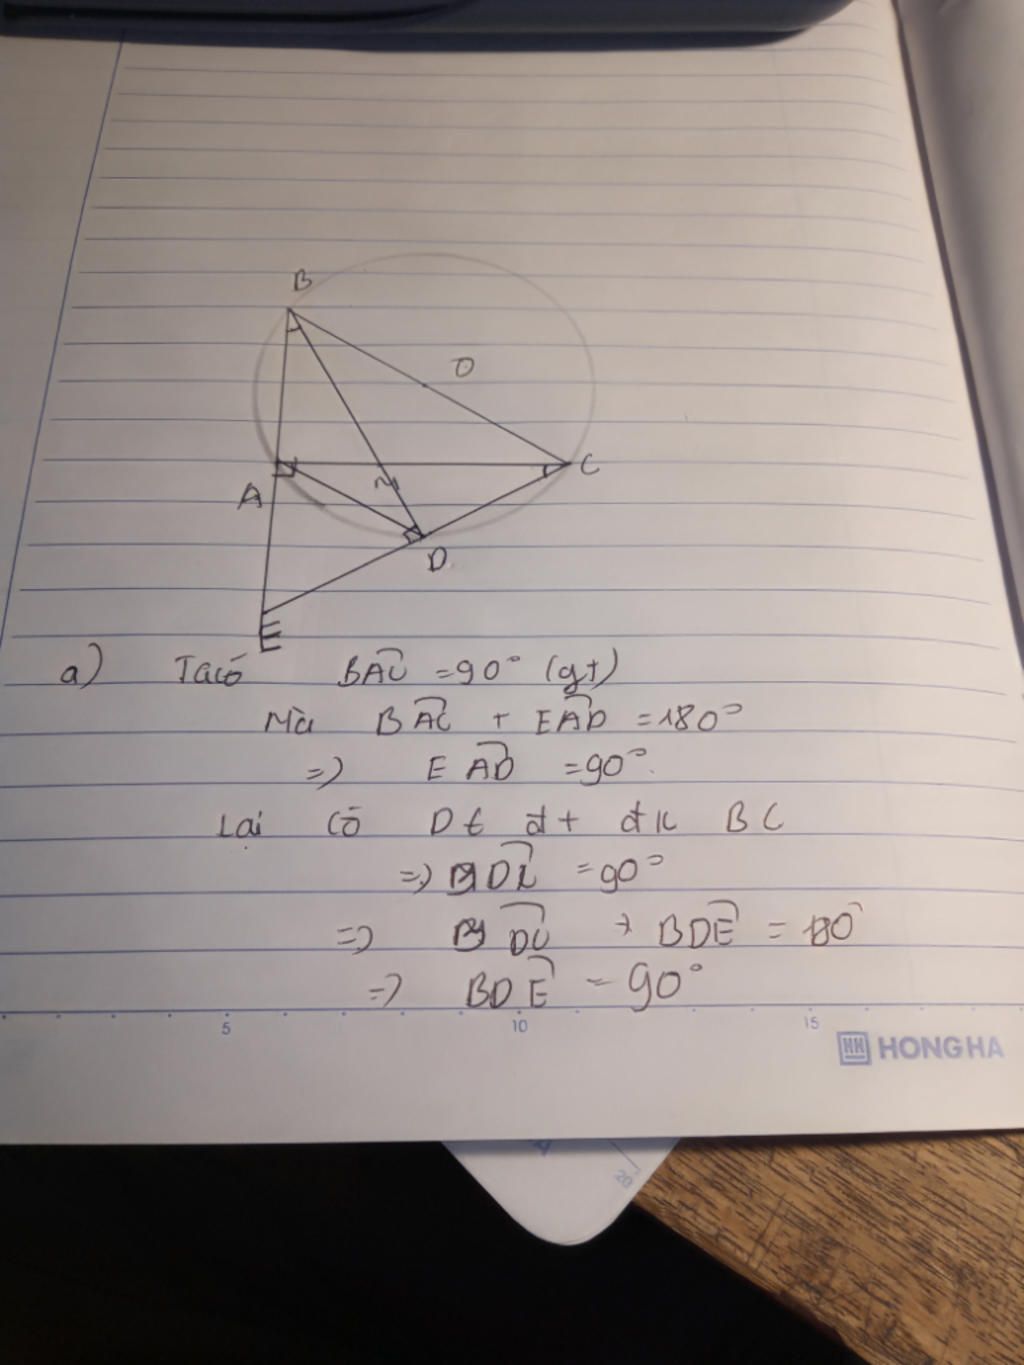 B
O
C
A
M
D
E
a) Ta có BAC = 90° (gt)
Mà BAC + EAD = 180°
=> EAD = 90°.
Lại có D € đt đk BC
=> BDC = 90°
=> BDC + BDE = 180
=> BDE = 90°
5 10 15
HH HONG HA
20